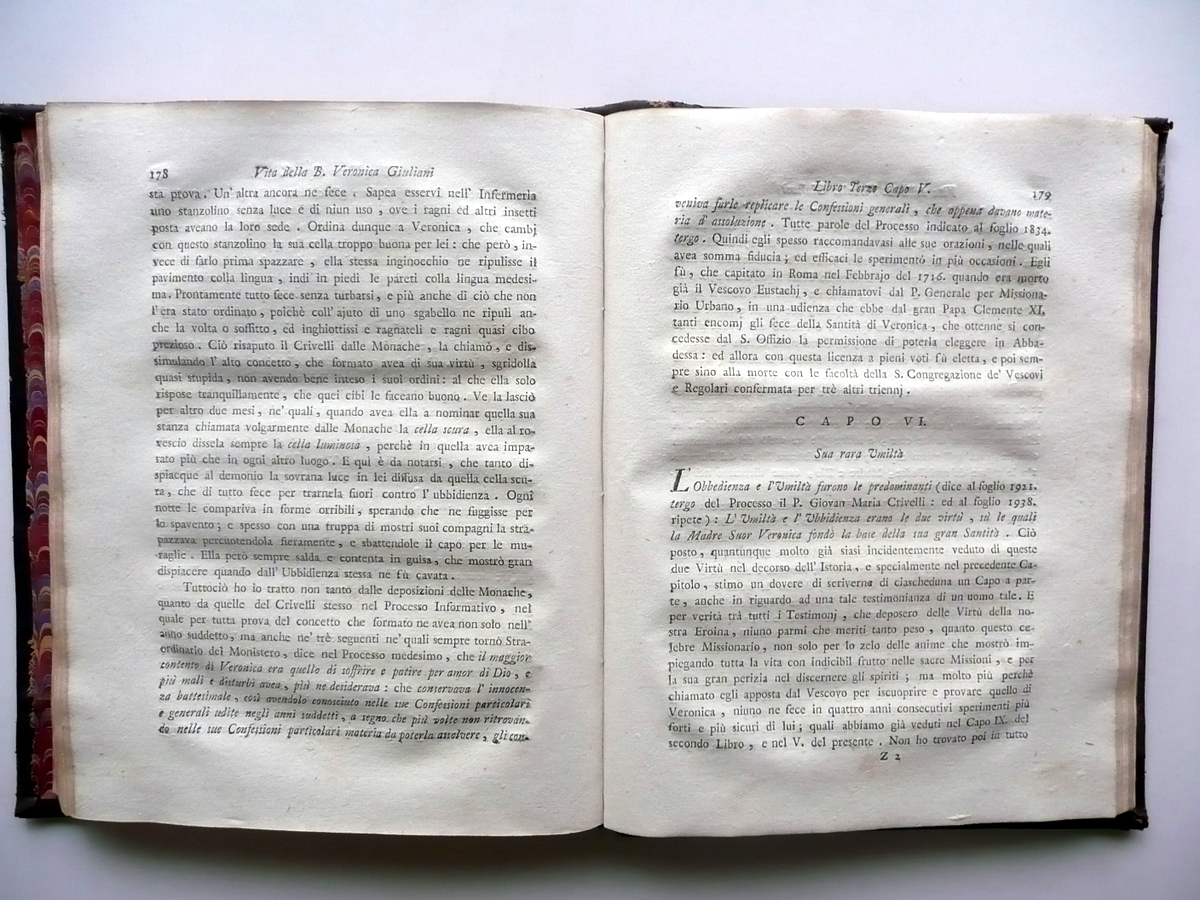 178
Vita della B. Veronica Giuliani
sta prova. Un' altra ancora ne fece. Sapea esservi nell' Infermeria
uno stanzolino senza luce e di niun uso, ove i ragni ed altri insetti
posta aveano la loro sede. Ordina dunque a Veronica, che cambj
con questo stanzolino la sua cella troppo buona per lei: che però, in-
vece di farlo prima spazzare, ella stessa inginocchio ne ripulisse il
pavimento colla lingua, indi in piedi le pareti colla lingua medesi-
ma. Prontamente tutto fece senza turbarsi, e più anche di ciò che non
l'era stato ordinato, poichè coll' ajuto di uno sgabello ne ripulì an-
che la volta o soffitto, ed inghiottissi e ragnateli e ragni quasi cibo
prezioso. Ciò risaputo il Crivelli dalle Monache, la chiamò, e dis-
simulando l' alto concetto, che formato avea di sua virtù, sgridolla
quasi stupida, non avendo bene inteso i suoi ordini: al che ella solo
rispose tranquillamente, che quei cibi le faceano buono. Ve la lasciò
per altro due mesi, ne' quali, quando avea ella a nominar quella sua
stanza chiamata volgarmente dalle Monache la cella scura, ella al ro-
vescio dissela sempre la cella luminosa, perchè in quella avea impa-
rato più che in ogni altro luogo. E quì è da notarsi, che tanto di-
spiacque al demonio la sovrana luce in lei diffusa da quella cella scu-
ra, che di tutto fece per trarnela fuori contro l' ubbidienza. Ogni
notte le compariva in forme orribili, sperando che ne fuggisse per
lo spavento; e spesso con una truppa di mostri suoi compagni la stra-
pazzava percuotendola fieramente, e sbattendole il capo per le mu-
raglie. Ella però sempre salda e contenta in guisa, che mostrò gran
dispiacere quando dall' Ubbidienza stessa ne fù cavata.
Tuttociò ho io tratto non tanto dalle deposizioni delle Monache,
quanto da quelle del Crivelli stesso nel Processo Informativo, nel
quale per tutta prova del concetto che formato ne avea non solo nell'
anno suddetto, ma anche ne' trè seguenti ne' quali sempre tornò Stra-
ordinario del Monistero, dice nel Processo medesimo, che il maggior
contento di Veronica era quello di soffrire e patire per amor di Dio, e
più mali e disturbi avea, più ne desiderava: che conservava l' innocen-
za battesimale, così avendolo conosciuto nelle sue Confessioni particolari
e generali udite negli anni suddetti, a segno che più volte non ritrovan-
do nelle sue Confessioni particolari materia da poterla assolvere, gli con-
Libro Terzo Capo V.
179
veniva farle replicare le Confessioni generali, che appena davano mate-
ria d' assoluzione. Tutte parole del Processo indicato al foglio 1834.
tergo. Quindi egli spesso raccomandavasi alle sue orazioni, nelle quali
avea somma fiducia; ed efficaci le sperimentò in più occasioni. Egli
fù, che capitato in Roma nel Febbrajo del 1716. quando era morto
già il Vescovo Eustachj, e chiamatovi dal P. Generale per Missiona-
rio Urbano, in una udienza che ebbe dal gran Papa Clemente XI,
tanti encomj gli fece della Santità di Veronica, che ottenne si con-
cedesse dal S. Offizio la permissione di poterla eleggere in Abba-
dessa: ed allora con questa licenza a pieni voti fù eletta, e poi sem-
pre sino alla morte con le facoltà della S. Congregazione de' Vescovi
e Regolari confermata per trè altri triennj.
CAPO VI.
Sua rara Umiltà
L'Obbedienza e l'Umiltà furono le predominanti (dice al foglio 1921.
tergo del Processo il P. Giovan Maria Crivelli: ed al foglio 1938.
ripete): L' Umiltà e l' Ubbidienza erano le due virtù, sù le quali
la Madre Suor Veronica fondò la base della sua gran Santità. Ciò
posto, quantunque molto già siasi incidentemente veduto di queste
due Virtù nel decorso dell' Istoria, e specialmente nel precedente Ca-
pitolo, stimo un dovere di scriverne di ciascheduna un Capo a par-
te, anche in riguardo ad una tale testimonianza di un uomo tale. E
per verità trà tutti i Testimonj, che deposero delle Virtù della no-
stra Eroina, niuno parmi che meriti tanto peso, quanto questo ce-
lebre Missionario, non solo per lo zelo delle anime che mostrò im-
piegando tutta la vita con indicibil frutto nelle sacre Missioni, e per
la sua gran perizia nel discernere gli spiriti; ma molto più perchè
chiamato egli apposta dal Vescovo per iscuoprire e provare quello di
Veronica, niuno ne fece in quattro anni consecutivi sperimenti più
forti e più sicuri di lui; quali abbiamo già veduti nel Capo IX. del
secondo Libro, e nel V. del presente. Non ho trovato poi in tutto
Z 2